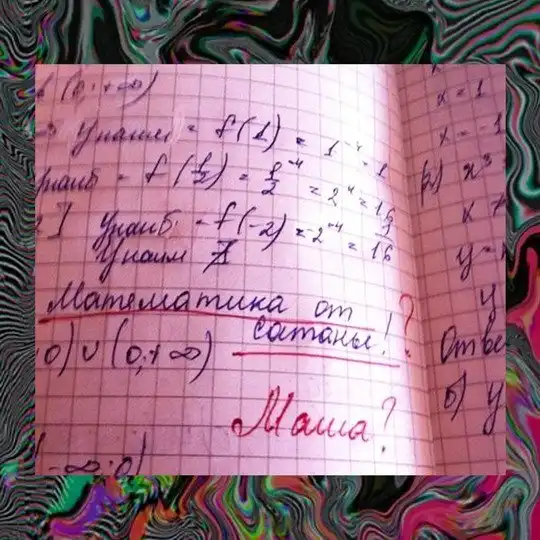 (0;+∞)
Унаим = f(1) = 1⁻⁴ = 1
наиб = f(1/2) = 1/2⁻⁴ = 2⁴ = 16
Унаиб. = f(-2) = -2⁻⁴ = 1/16
Унаим ∄
Математика от
сатаны!?
0) ∪ (0;+∞)
Маша?
-∞;0)
x = 1
x = -1
x³
x
y =
y
Отве
б) y